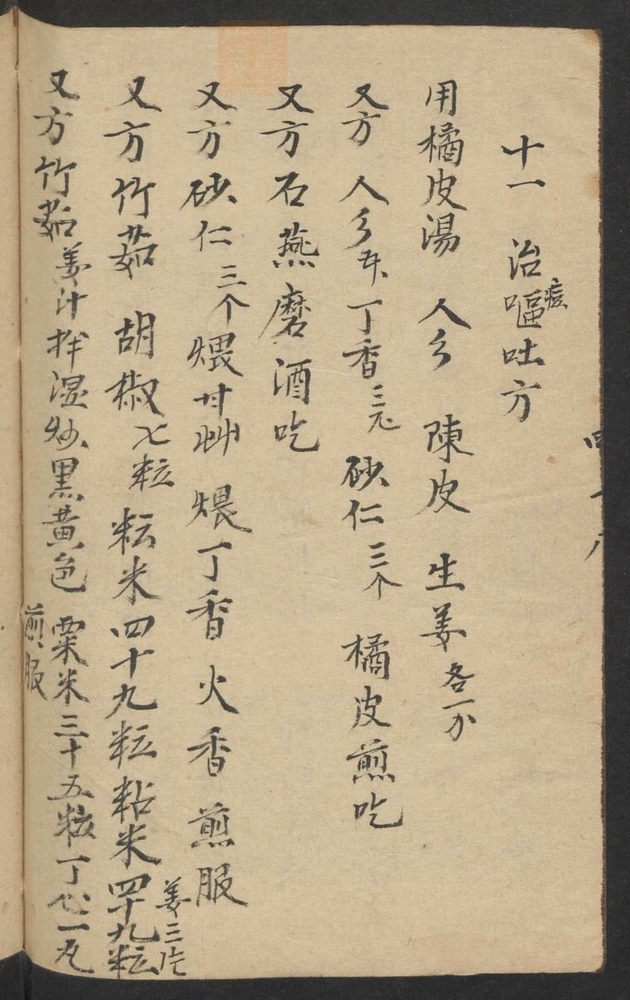 十一 治嘔吐方
痘
用橘皮湯 人 陳皮 生姜各一
又方 人 丁香三 砂仁三个 橘皮煎吃
又方石燕磨酒吃
又方砂仁三个 煨甘艸 煨丁香 火香 煎服
又方竹茹 胡椒七粒 粘米四十九粒 姜三片
又方竹茹姜汁拌湿炒黑黄色 粟米三十五粒丁心一
煎服